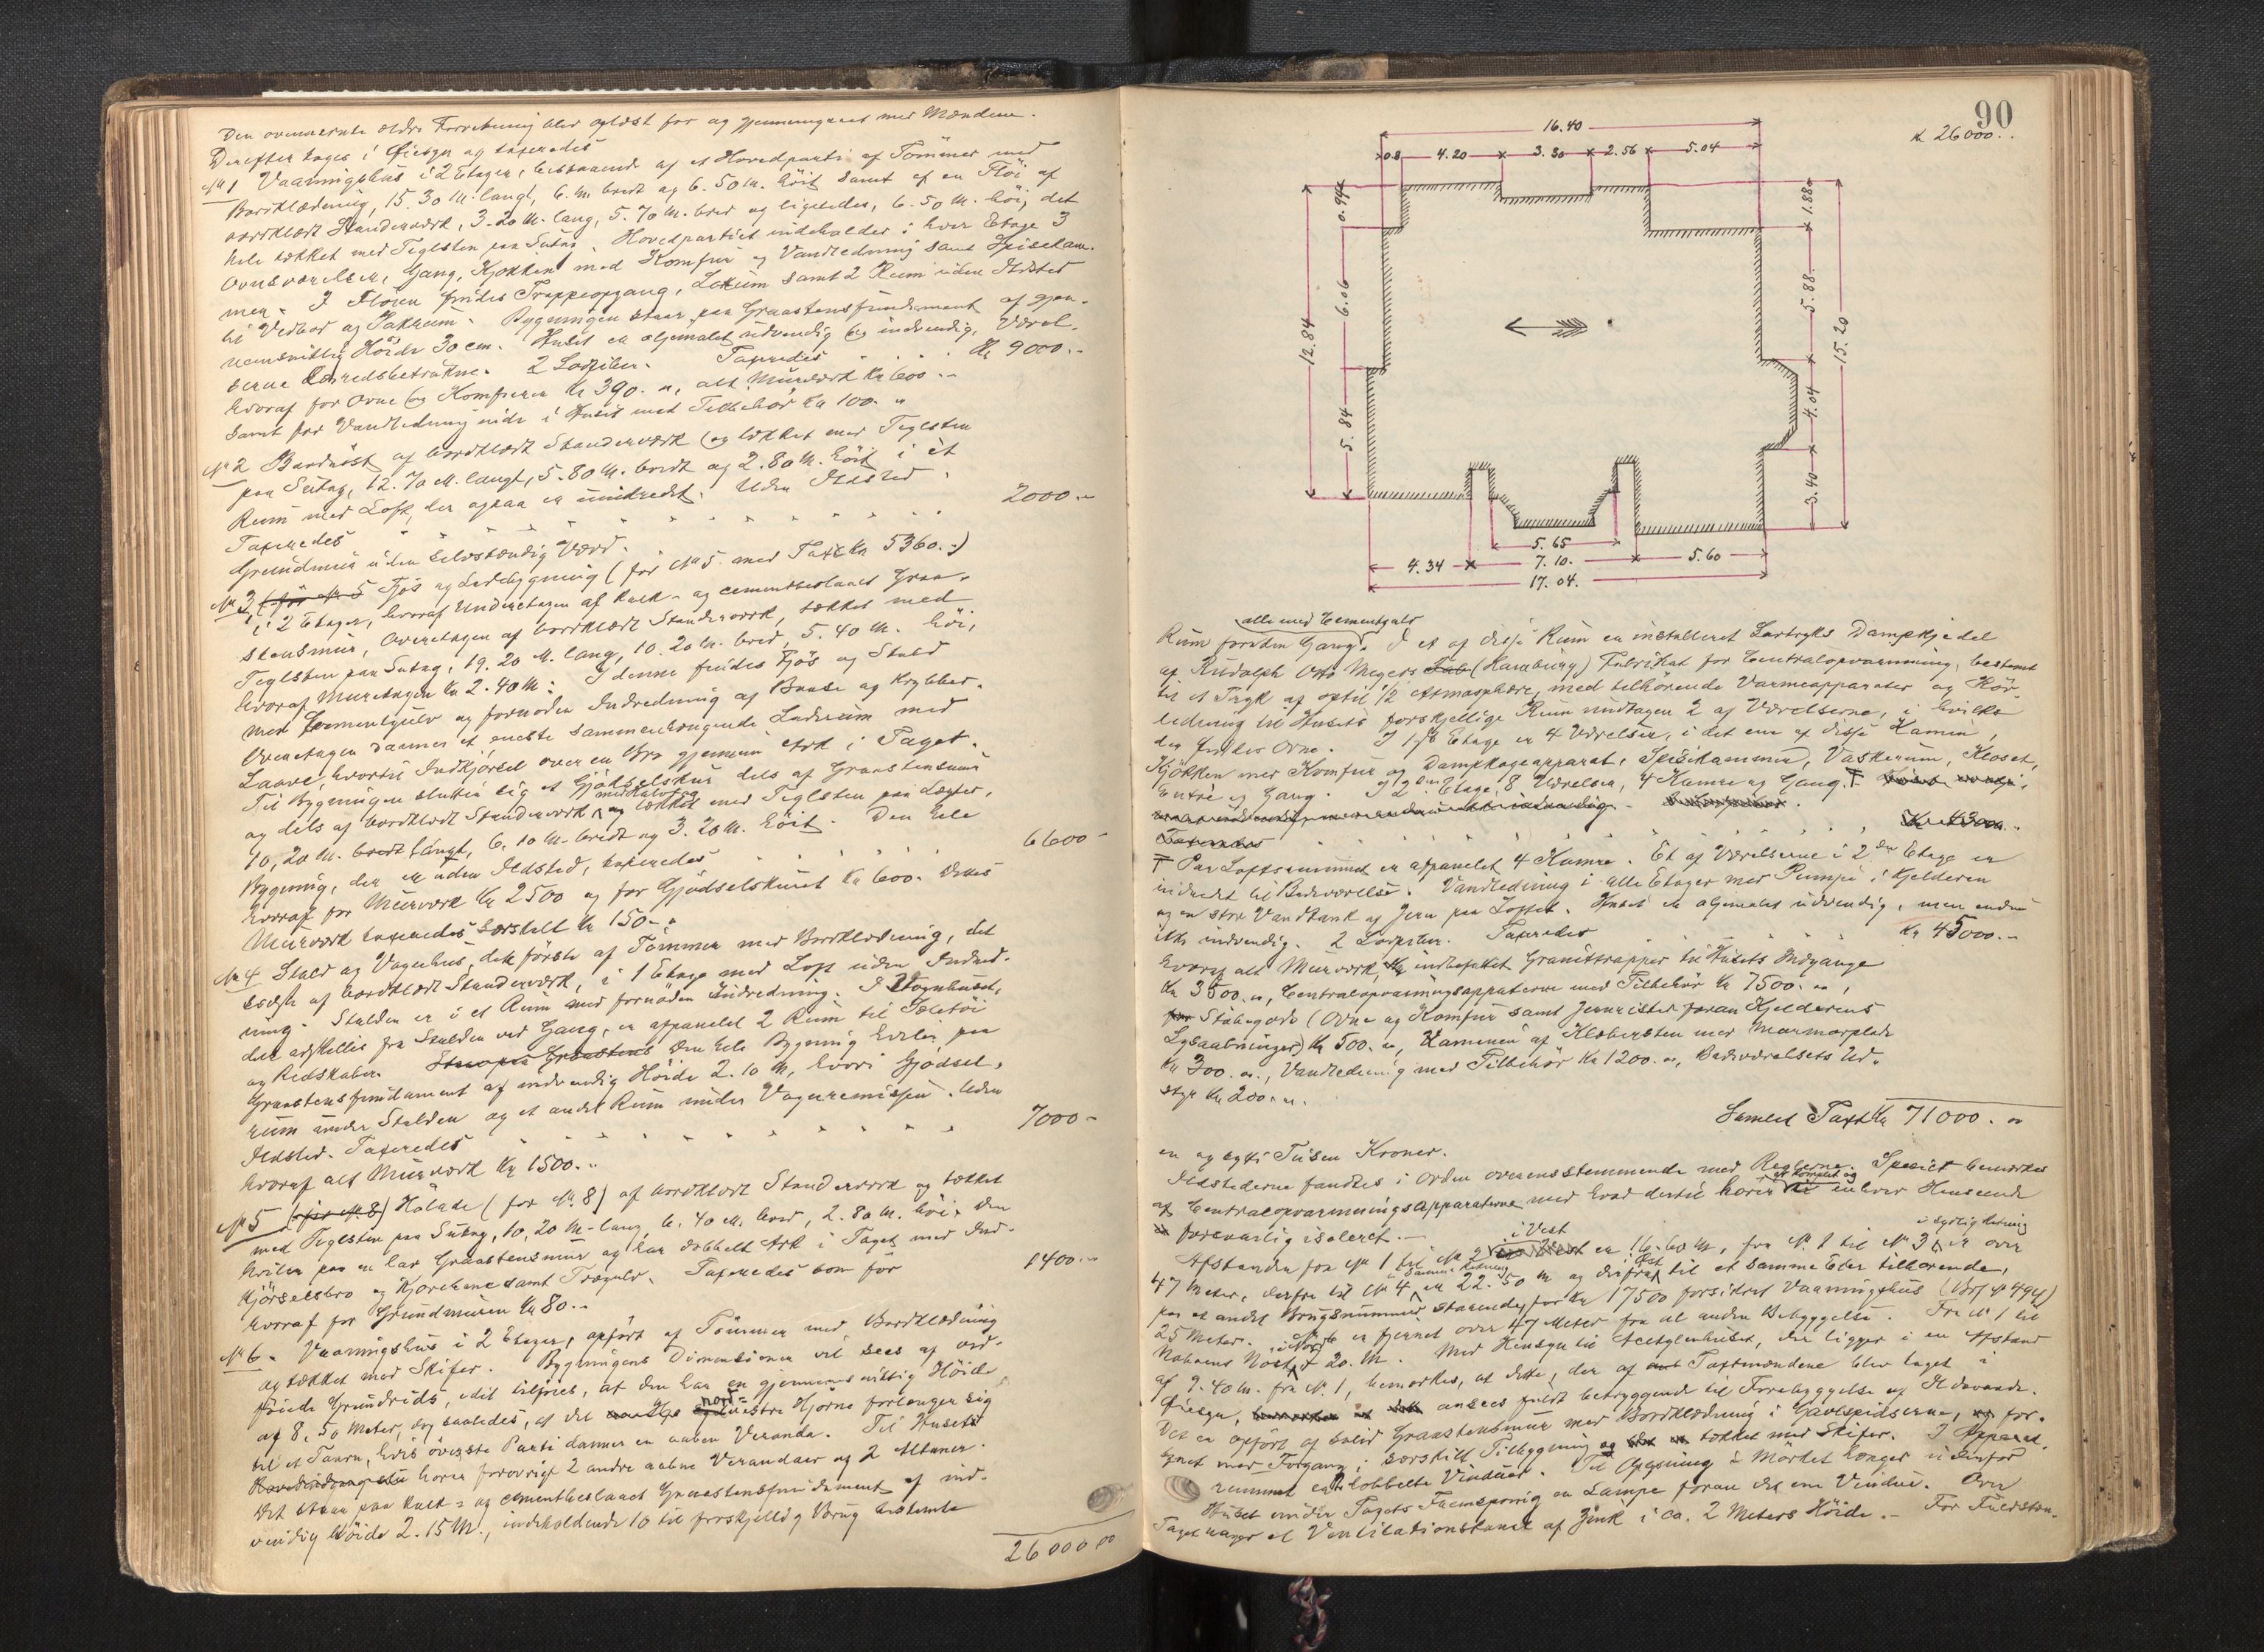 Den ovennævnte ældre Forretning blev oplæst for og gjennemgaaet med Mændene.
Derefter toges i Øiesyn og taxeredes
No 1 Vaaningshus i 2 Etager, bestaaende af et Hovedparti af Tömmer med
Bordklædning, 15.30 M. langt, 6. M. bredt og 6.50 M. höit samt af en Flöi af
bordklædt Standerværk, 3.20 M. lang, 5.70 M. bred og ligeledes, 6.50 M. höi, det
hele tækket med Teglsten paa Sutag. Hovedpartiet indeholder i hver Etage 3
Ovnsværelser, Gang, Kjökken med Komfur og Vandledning samt Spisekam-
mer. I Flöien findes Trappeopgang, Lokum samt 2 Rum uden Ildsted
til Vedbod og Pakrum. Bygningen staar paa Graastensfundament af gjen-
nemsnitlig Höide 30 cm. Huset er oljemalet udvendig og indvendig, Værel-
serne Lærredsbetrukne. 2 Lodpiber. Taxeredes Kr 9000.-
hvoraf for Ovne og Komfurer Kr 390.-, alt Murværk Kr 600.-
samt for Vandledning inde i Huset med Tilbehör Kr 100.-
No 2 Baadnöst af bordklædt Standerværk og tækket med Teglsten
paa Sutag, 12.70 M. langt, 5.80 M. bredt og 2.80 M. höit i èt
Rum med Loft, der ogsaa er uindredet. Uden Ildsted.
Taxeredes 2000.-
Grundmur uden selvstændig Værd.
No 3 (för No 5 Fjös og Ladebygning (för No 5 med Taxt Kr 5360.-)
i 2 Etager, hvoraf Underetagen af kalk- og cementbeslaaet Graa-
stensmur, Overetagen af bordklædt Standerværk, tækket med
Teglsten paa Sutag, 19.20 M. lang, 10.20 M. bred, 5.40 M. höi,
hvoraf Muretagen Kr 2.40 M. I denne findes Fjös og Stald
med Cementgulv og fornöden Indredning af Baase og Krybber.
Overetagen danner et eneste sammenhængende Laderum med
Laave, hvortil Indkjörsel over en Bro gjennem Ark i Taget.
Til Bygningen slutter sig et Gjödselskur dels af Graastensmur
og dels af bordklædt Standerværk og tækket med Teglsten paa Lægter,
10,20 M. bredt langt, 6.10 M. bredt og 3.20 M. höit. Den hele
Bygning, der er uden Ildsted, taxeredes 6600-
hvoraf for Murværk Kr 2500 og for Gjödselskuret Kr 600. Dettes
Murværk taxeredes særskilt Kr 150.-
No 4 Stald og Vognhus, det förste af Tömmer med Bordklædning, det
sidste af bordklædt Standerværk, i 1 Etage med Loft uden Indred-
ning. Stalden er i et Rum med fornöden Indredning. I Vognhuset,
der adskilles fra Stalden ved Gang, er afpanelet 2 Rum til Seletöi
og Redskaber. Staar paa Graastens Den hele Bygning hviler paa
Graastensfundament af indvendig Höide 2.10 M, hvori Gjödsel-
rum under Stalden og et andet Rum under Vognremissen. Uden
Ildsted. Taxeredes 7000-
hvoraf alt Murværk Kr 1500.-
No 5 (för No 8) Hölade (för No 8) af bordklædt Standerværk og tækket
med Teglsten paa Sutag, 10,20 M. lang, 6.40 M. bred, 2.80 M. höi. Den
hviler paa en lav Graastensmur og har dobbelt Ark i Taget med Ind-
kjörselsbro og Kjörebane samt Trægulv. Taxeredes som för 1400.-
hvoraf for Grundmuren Kr 80.-
No 6. Vaaningshus i 2 Etager, opfört af Tömmer med Bordklædning
og tækket med Skifer. Bygningens Dimensioner vil sees af ved-
föiede Grundrids, idet tilföies, at den har en gjennemsnitlig Höide
af 8.50 Meter, dog saaledes, at det nordvestre Hjörne forlænger sig
til et Taarn, hvis överste Parti danner en aaben Veranda. Til Husets
Hovedindgang hörer forövrigt 2 andre aabne Verandaer og 2 Altaner.
Det staar paa kalk- og cementbeslaaet Graastensfundament af ind-
vendig Höide 2.15 M., indeholdende 10 til forskjellig Brug bestemte
26000.00
90
Kr 26000.-
16.40
0.8 4.20 3.30 2.56 5.04
0.94 6.06 5.84 12.84
1.88 5.88 4.04 3.40 15.20
5.65
4.34 7.10. 5.60
17.04.
alle med Cementgulv
Rum foruden Gang. I et af disse Rum er installeret Lavtryks Dampkjedel
af Rudolph Otto Meyers Fab (Hamburg) Fabrikat for Centralopvarmning, bestemt
til et Tryk af optil 1/2 Atmosphære, med tilhörende Varmeapparater og Rör-
ledning til Husets forskjellige Rum undtagen 2 af Værelserne, i hvilke
der findes Ovne. I 1ste Etage er 4 Værelser, i det ene af disse Kamin,
Kjökken med Komfur og Dampkogeapparat, Spisekammer, Vaskerum, Kloset,
Entré og Gang. I 2den Etage, 8 Værelser, 4 Kamre og Gang. T
Taxeredes Kr 4300.-
T Paa Loftsrummet er afpanelet 4 Kamre. Et af Værelserne i 2den Etage er
indredet til Badeværelse. Vandledning i alle Etager med Pumpe i Kjelderen
og en stor Vandtank af Jern paa Loftet. Huset er oljemalet udvendig, men endnu
ikke indvendig. 2 Lodpiber. Taxeredes Kr 45000.-
hvoraf alt Murværk, indbefattet Granittrapper til Husets Indgange
Kr 3500.-, Centralopvarmingsapparaterne med Tilbehör Kr 7500.-,
for Stöbegods (Ovne og Komfur samt Jernrister foran Kjelderens
Lysaabninger) Kr 500.-, Kaminen af Klæbersten med Marmorplade
Kr 300.-, Vandledning med Tilbehör Kr 1200.-, Badeværelsets Ud-
styr Kr 200.-.
Samlet Taxt Kr 71000.-
en og sytti Tusen Kroner.
Ildstederne fandtes i Orden overensstemmende med Reglerne. Specielt bemærkes
at Centralopvarmningsapparaterne med hvad dertil hörer er komplet og i enhver Henseende
forsvarlig isoleret.-
Afstanden fra No 1 til No 2 i Vest er 16.60 M, fra No 1 til No 3 i sydlig Retning er over
47 Meter, derfra til No 4 i samme Retning er 22.50 M og derfra i Öst til et samme Eier tilhörende,
paa et andet Brugsnummer staaende, for Kr 17500 forsikret Vaaningshus (Brf No 494)
25 Meter. No 6 er fjernet over 47 Meter fra al anden Bebyggelse. Fra No 1 til
Naboens Nöst i Nord 20. M. Med Hensyn til Acetylenhuset, der ligger i en Afstand
af 9.40 M. fra No 1, bemærkes, at dette, der af Taxtmændene blev taget i
Öiesyn, ansees fuldt betryggende til Forebyggelse af Ildsvaade.
Det er opfört af solid Graastensmur med Bordklædning i Gavlspidserne, for-
synet med Forgang i særskilt Tilbygning og tækket med Skifer. I Apparat-
rummet er dobbelte Vinduer. Til Oplysning i Mörket hænger udenfor
Huset under Tagets Fremspring en Lampe foran det ene Vindue. Over
Taget rager et Ventilationskanal af Zink i ca. 2 Meters Höide.- For Fuldstæn-